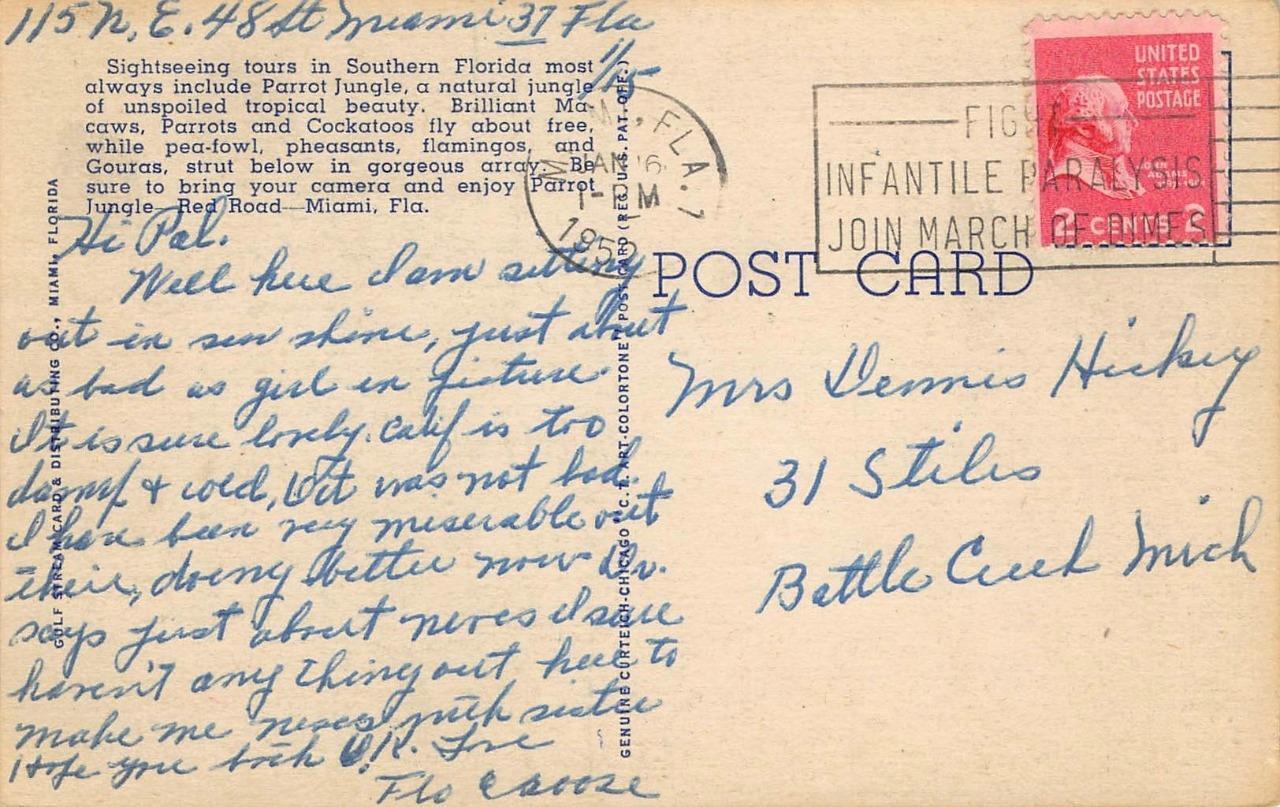 115 N. E. 48 St Miami 37 Fla
1/15
Sightseeing tours in Southern Florida most
always include Parrot Jungle, a natural jungle
of unspoiled tropical beauty. Brilliant Ma-
caws, Parrots and Cockatoos fly about free,
while pea-fowl, pheasants, flamingos, and
Gouras, strut below in gorgeous array. Be
sure to bring your camera and enjoy Parrot
Jungle—Red Road—Miami, Fla.
Hi Pal.
Well here I am sitting
out in sun shine, just about
as bad as girl in picture.
It is sure lovely. Calif is too
damp & cold, but was not bad.
I have been very miserable out
their, doing better now Dr.
says just about nerves I sure
haven't any thing out here to
make me nerves with sister
Hope you both O.K.
Flo
GULF STREAM CARD & DISTRIBUTING CO., MIAMI, FLORIDA
GENUINE CURTEICH-CHICAGO "C. T. ART-COLORTONE" POST CARD (REG. U. S. PAT. OFF.)
MIAMI, FLA. 7
JAN 16
1-PM
1952
FIGHT
INFANTILE PARALYSIS
JOIN MARCH OF DIMES
UNITED
STATES
POSTAGE
JOHN
ADAMS
2 CENTS 2
POST CARD
Mrs Dennis Hickey
31 Stiles
Battle Creek Mich